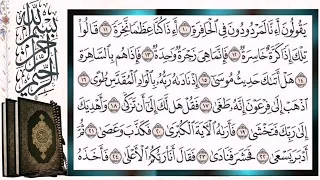 بسم الله الرحمن الرحيم
يَقُولُونَ أَءِنَّا لَمَرْدُودُونَ فِي ٱلْحَافِرَةِ ١٠ أَءِذَا كُنَّا عِظَٰمًا نَّخِرَةً ١١ قَالُوا۟
تِلْكَ إِذًا كَرَّةٌ خَاسِرَةٌ ١٢ فَإِنَّمَا هِيَ زَجْرَةٌ وَٰحِدَةٌ ١٣ فَإِذَا هُم بِٱلسَّاهِرَةِ
١٤ هَلْ أَتَىٰكَ حَدِيثُ مُوسَىٰٓ ١٥ إِذْ نَادَىٰهُ رَبُّهُۥ بِٱلْوَادِ ٱلْمُقَدَّسِ طُوًى ١٦
ٱذْهَبْ إِلَىٰ فِرْعَوْنَ إِنَّهُۥ طَغَىٰ ١٧ فَقُلْ هَل لَّكَ إِلَىٰٓ أَن تَزَكَّىٰ ١٨ وَأَهْدِيَكَ
إِلَىٰ رَبِّكَ فَتَخْشَىٰ ١٩ فَأَرَىٰهُ ٱلْءَايَةَ ٱلْكُبْرَىٰ ٢٠ فَكَذَّبَ وَعَصَىٰ ٢١ ثُمَّ
أَدْبَرَ يَسْعَىٰ ٢٢ فَحَشَرَ فَنَادَىٰ ٢٣ فَقَالَ أَنَا۠ رَبُّكُمُ ٱلْأَعْلَىٰ ٢٤ فَأَخَذَهُ